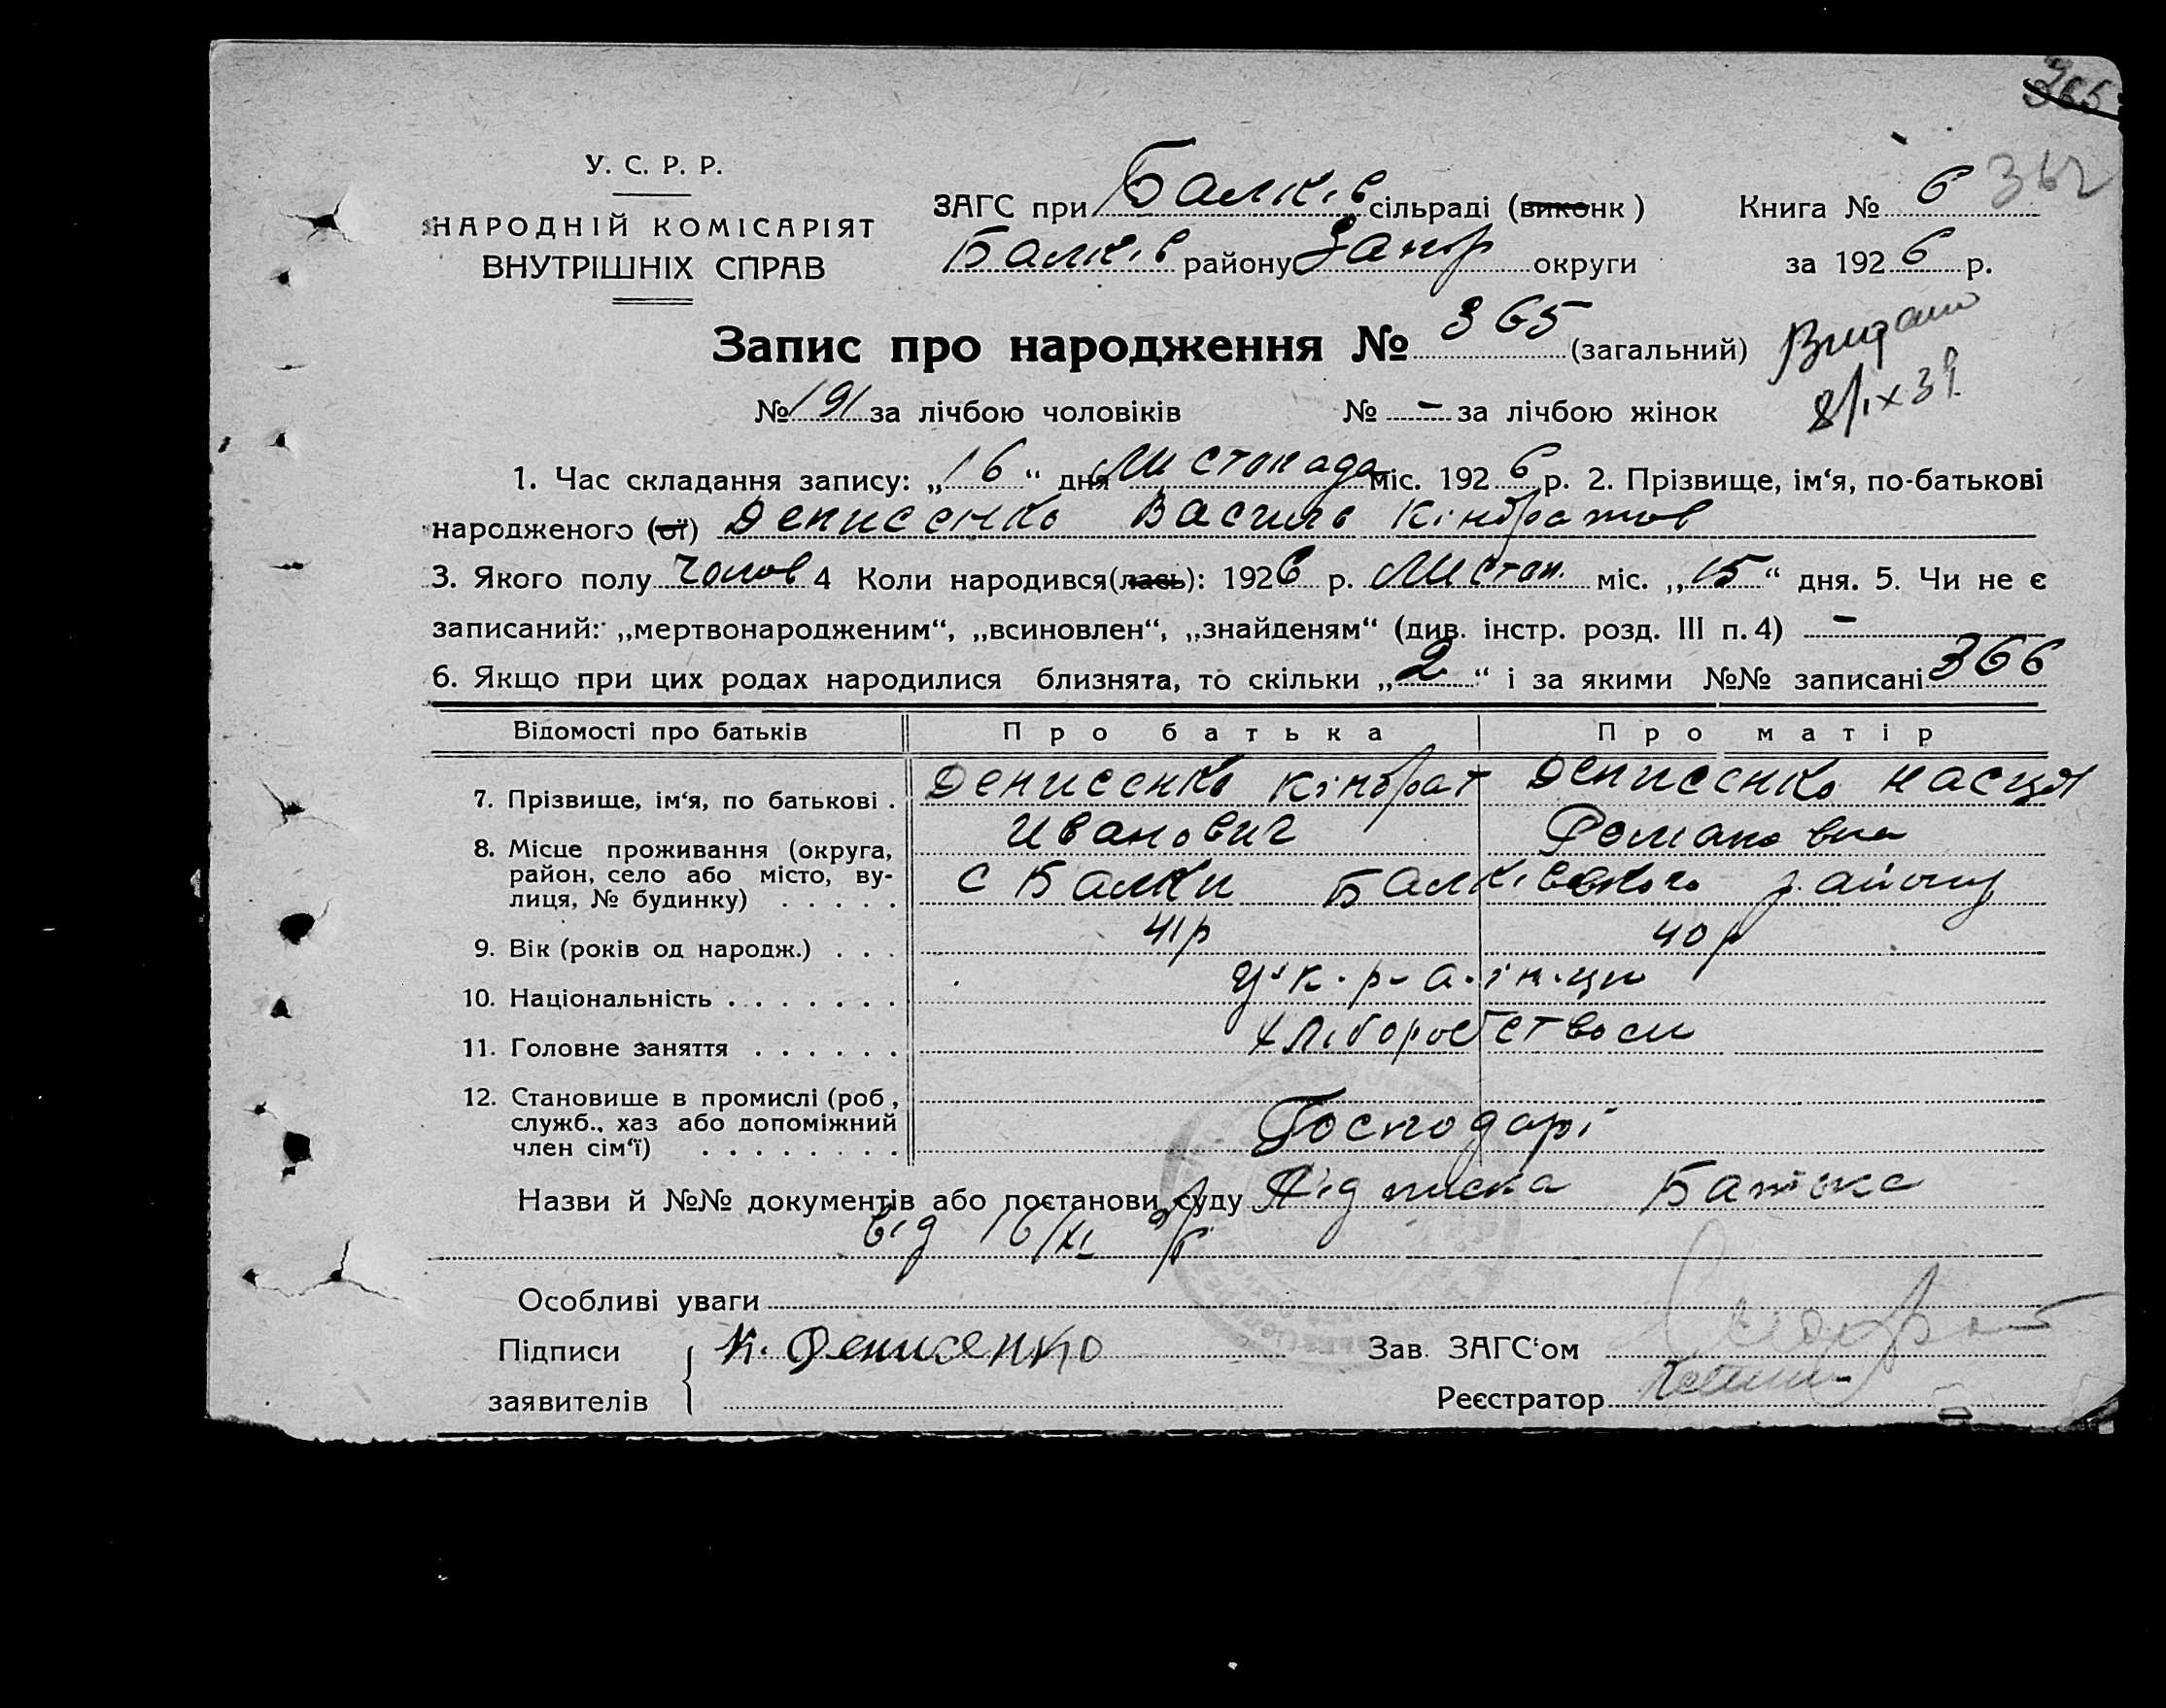 365
У. С. Р. Р.
НАРОДНІЙ КОМІСАРІЯТ
ВНУТРІШНІХ СПРАВ
ЗАГС при Балків сільраді (виконк)
Балків району Запор округи
Книга № 6 362
за 1926 р.
Запис про народження № 365 (загальний)
Видано
8/IX 39
№ 191 за лічбою чоловіків № – за лічбою жінок
1. Час складання запису: „16“ дня Листопада міс. 1926 р. 2. Прізвище, ім‘я, по-батькові
народженого (ої) Денисенко Василь Кіндратов
3. Якого полу Чолов 4 Коли народився(лась): 1926 р. Листоп. міс. „15“ дня. 5. Чи не є
записаний: „мертвонародженим“, „всиновлен“, „знайденям“ (див. інстр. розд. III п. 4) –
6. Якщо при цих родах народилися близнята, то скільки „2“ і за якими №№ записані 366
Відомості про батьків Про батька Про матір
7. Прізвище, ім‘я, по батькові . Денисенко Кіндрат Денисенко Насця
Иванович Романовна
8. Місце проживання (округа,
район, село або місто, ву-
лиця, № будинку) . . . . . с Балки Балківського району
9. Вік (років од народж.) . . . 41р 40р
10. Національність . . . . . . . у-к-р-а-їн-ци
11. Головне заняття . . . . . . Хліборобством
12. Становище в промислі (роб,
служб., хаз або допоміжний
член сім‘ї) . . . . . . . . Господарі
Назви й №№ документів або постанови суду Підписка Батька
від 16/XI
Особливі уваги
Підписи К. Денисенко Зав. ЗАГС‘ом
заявителів Реєстратор